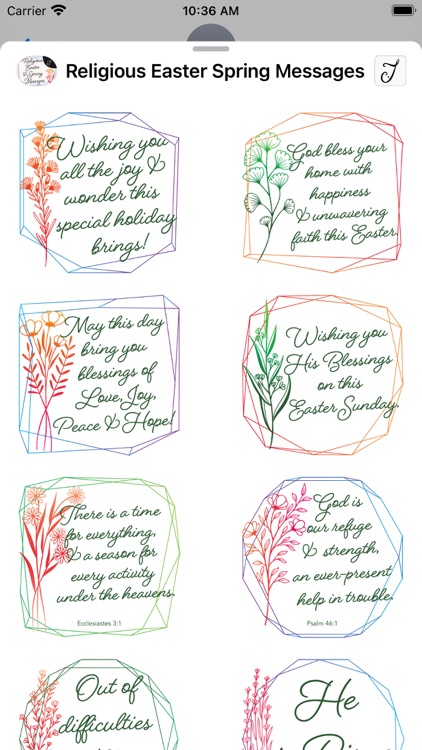 Carrier 10:36 AM
Religious Easter Spring Messages
Wishing you
all the joy &
wonder this
special holiday
brings!
God bless your
home with
happiness
& unwavering
faith this Easter.
May this day
bring you
blessings of
Love, Joy,
Peace & Hope!
Wishing you
His Blessings
on this
Easter Sunday.
There is a time
for everything,
& a season for
every activity
under the heavens.
Ecclesiastes 3:1
God is
our refuge
& strength,
an ever-present
help in trouble.
Psalm 46:1
Out of
difficulties
He